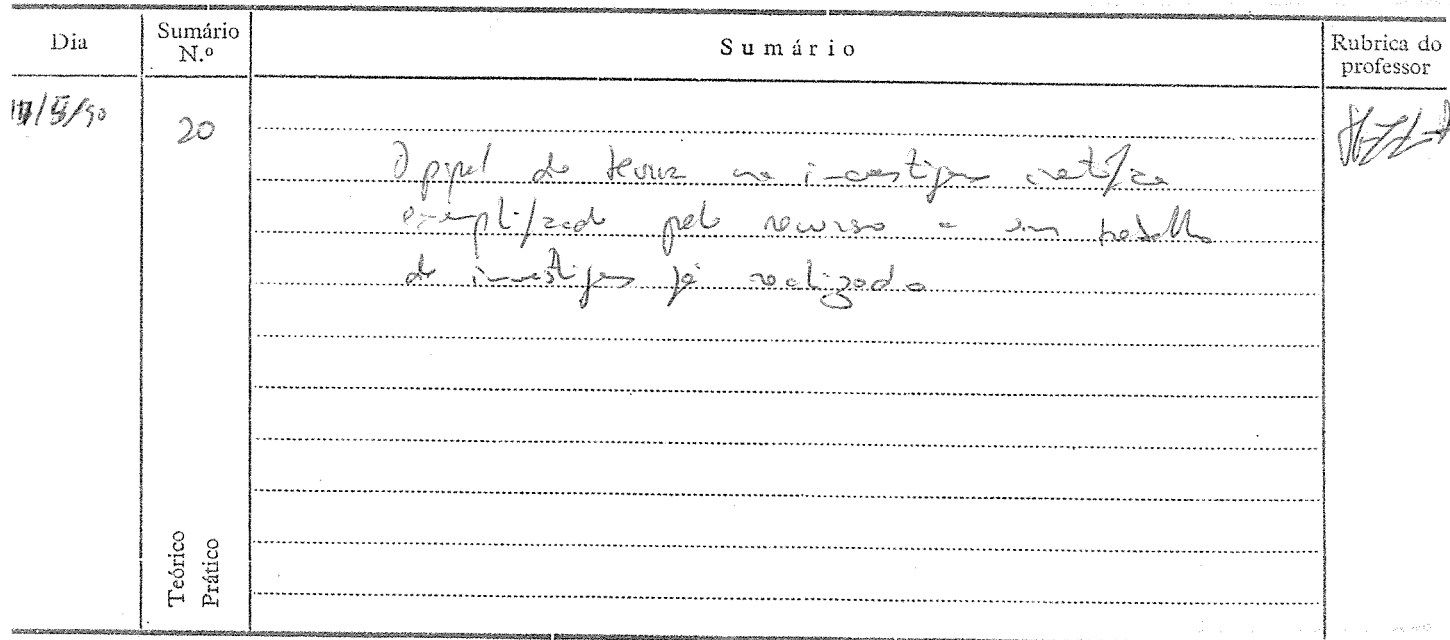 Dia
Sumário N.º
Sumário
Rubrica do professor
20
O papel da teoria na investigação científica
exemplificado pelo recurso a um trabalho
de investigação já realizado
Teórico
Prático